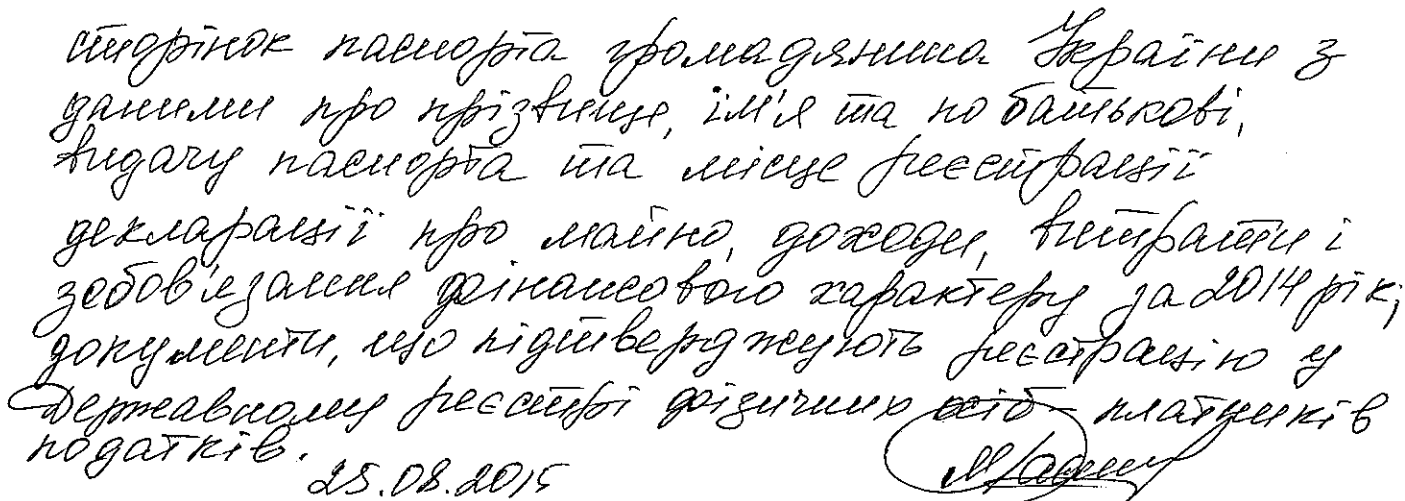 сторінок паспорта громадянина України з
даними про прізвище, ім'я та по батькові,
видачу паспорта та місце реєстрації
декларації про майно, доходи, витрати і
зобов'язання фінансового характеру за 2014 рік;
документи, що підтверджують реєстрацію у
Державному реєстрі фізичних осіб - платників
податків.
25.08.2015